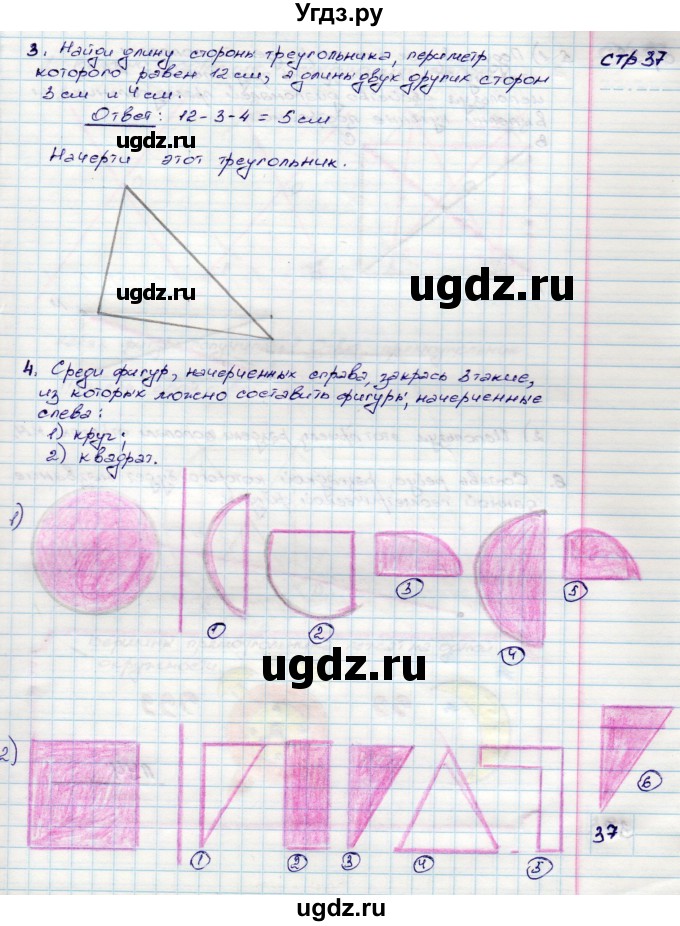 Угдз.ру
стр 37
3. Найди длину стороны треугольника, периметр
которого равен 12 см, а длины двух других сторон
3 см и 4 см.
Ответ: 12-3-4 = 5 см
ugdz.ru
Начерти этот треугольник.
ugdz.ru
ugdz.ru
4. Среди фигур, начерченных справа, закрась 3 такие,
из которых можно составить фигуры, начерченные
слева:
1) круг;
2) квадрат.
1)
1
2
3
4
5
ugdz.ru
2)
1
2
3
4
5
6
37
ugdz.ru